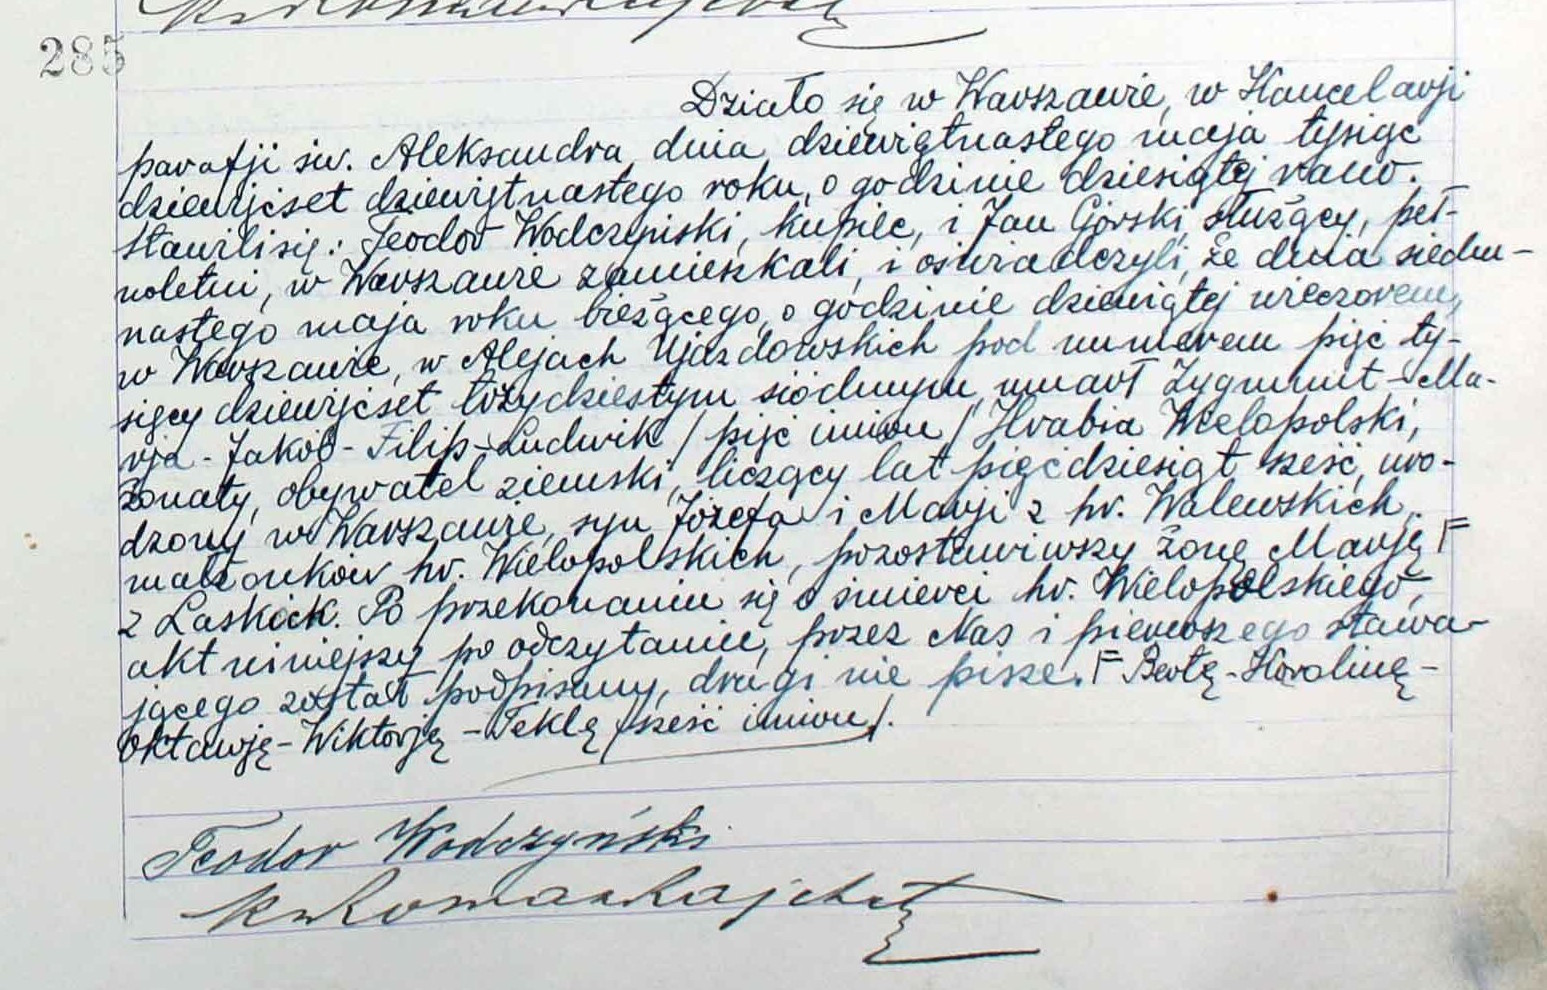 285
Działo się w Warszawie, w Kancelarji
parafji św. Aleksandra, dnia dziewiętnastego maja tysiąc
dziewięćset dziewiętnastego roku, o godzinie dziesiątej rano.
Stawili się: Teodor Wodczyński, kupiec, i Jan Górski, służący, peł-
noletni, w Warszawie zamieszkali, i oświadczyli, że dnia siedm-
nastego maja roku bieżącego, o godzinie dziewiątej wieczorem,
w Warszawie, w Alejach Ujazdowskich pod numerem pięć ty-
sięcy dziewięćset trzydziestym siódmym, umarł Zygmunt-Ma-
rja-Jakób-Filip-Ludwik /pięć imion/ Hrabia Wielopolski,
żonaty, obywatel ziemski, liczący lat pięćdziesiąt sześć, uro-
dzony w Warszawie, syn Józefa i Marji z hr. Walewskich,
małżonków hr. Wielopolskich, pozostawiwszy żonę Marję F
z Laskich. Po przekonaniu się o śmierci hr. Wielopolskiego,
akt niniejszy po odczytaniu, przez Nas i pierwszego stawa-
jącego został podpisany, drugi nie pisze. F Bertę-Karolinę-
Oktawję-Wiktorję-Teklę /sześć imion/.
Teodor Wodczyński